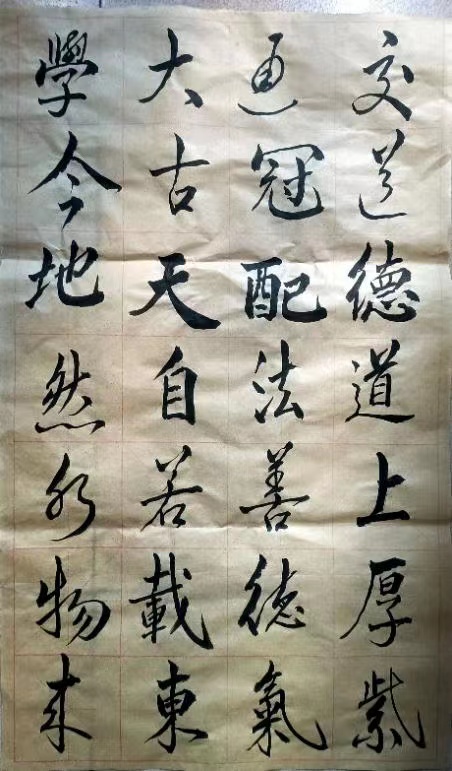 交通大學
道冠古今
德配天地
道法自然
上善若水
厚德載物
紫氣東来